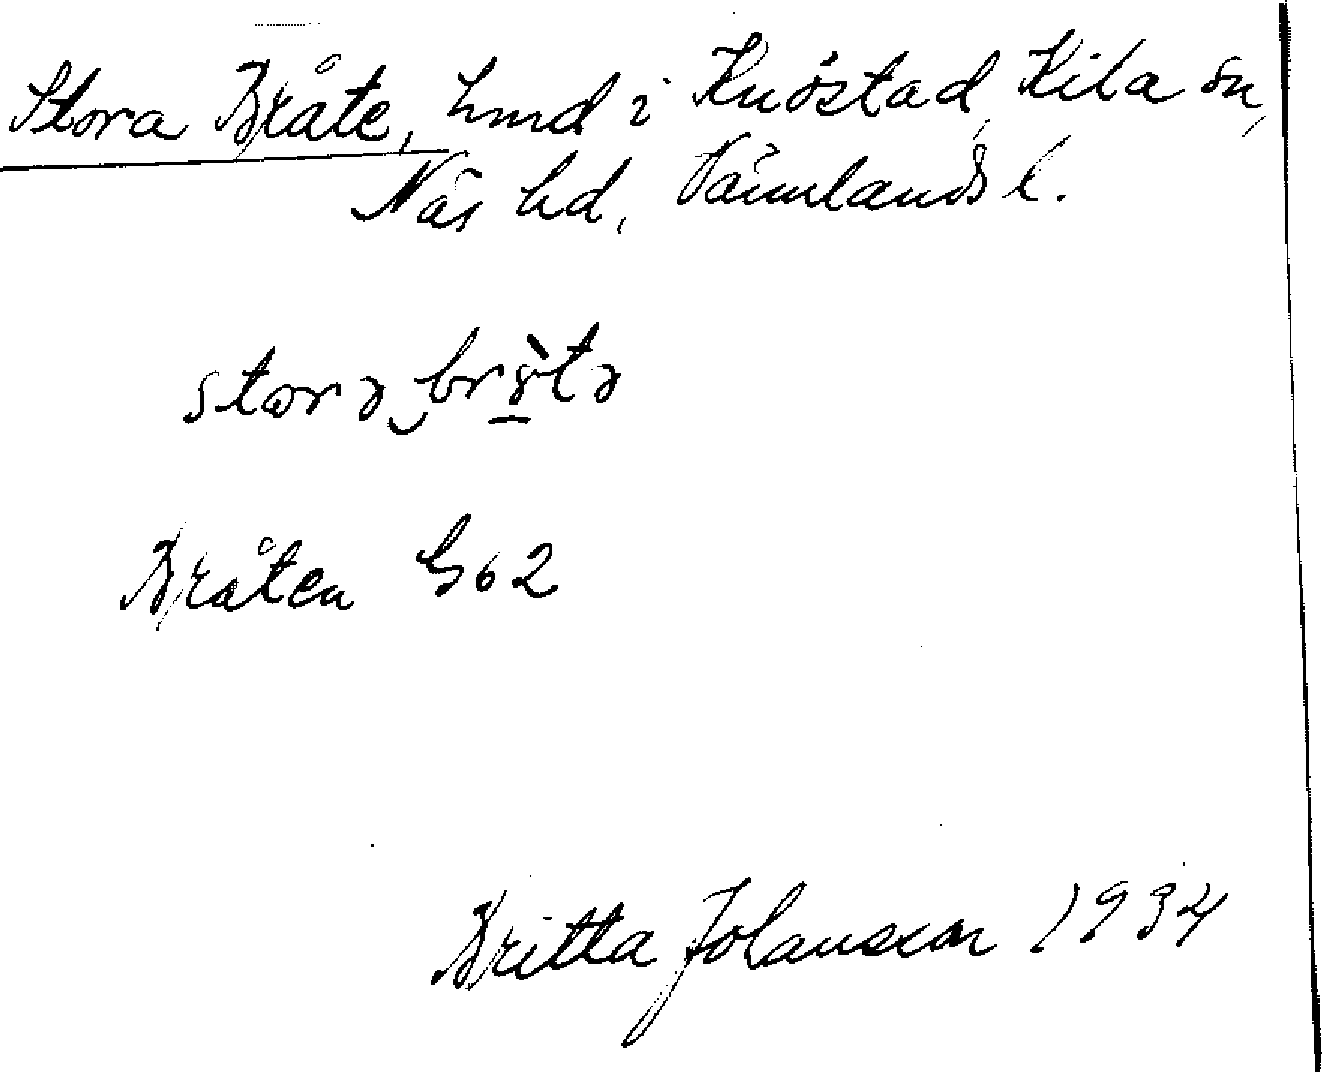 Stora Bråte, hmd i Knöstad, Kila sn,
Näs hd, Värmlands l.
storə‿brɤ̀tə
Bråten G62
Britta Johansson 1934